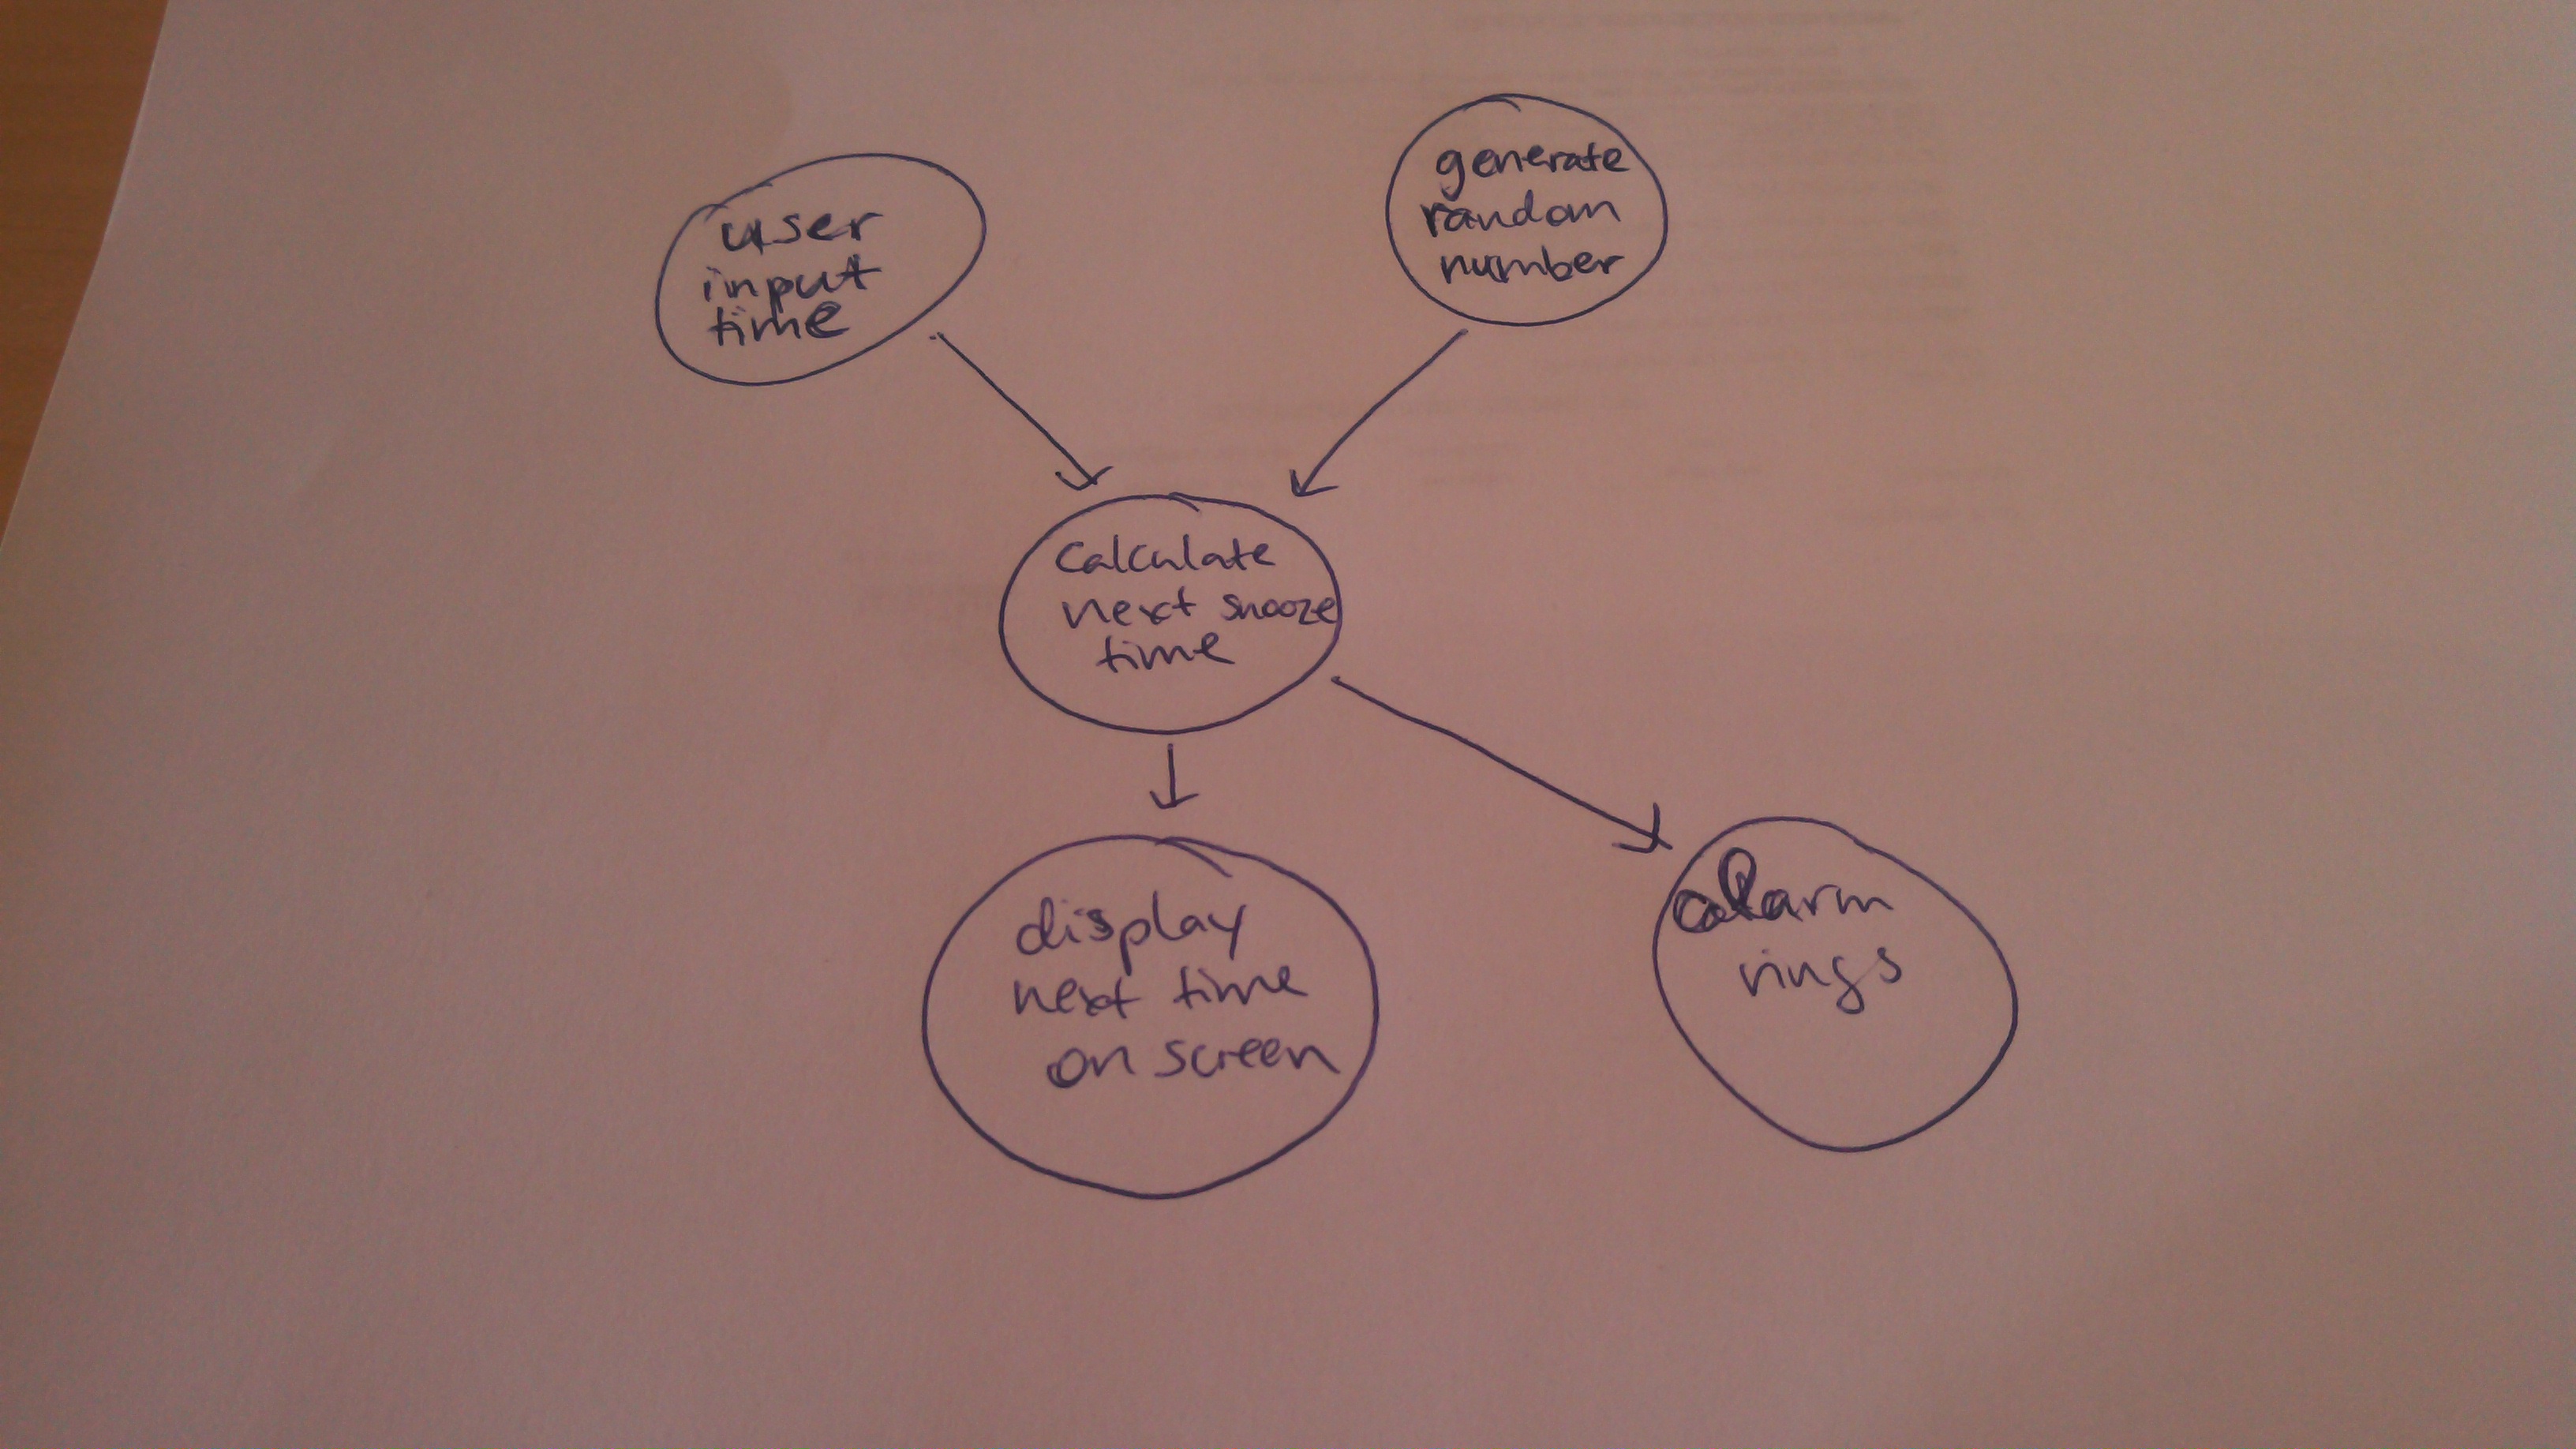 user
input
time
generate
random
number
calculate
next snooze
time
display
next time
on screen
alarm
rings